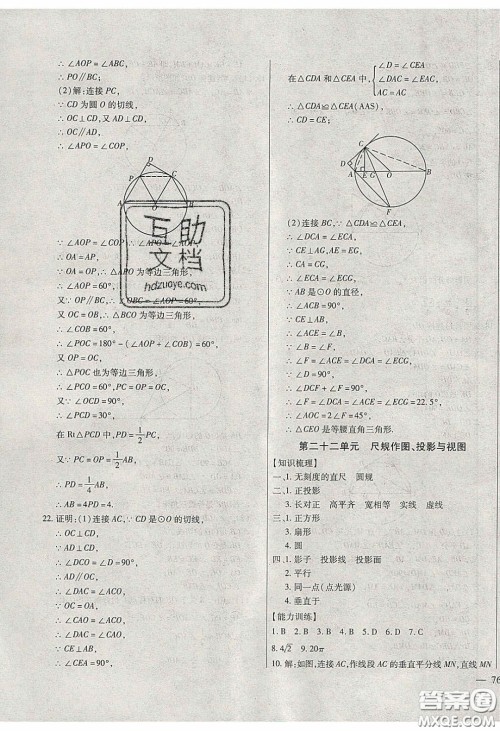 ∴ ∠AOP = ∠ABC,
∴ PO∥BC;
(2)解:连接 PC,
∵ CD 为圆 O 的切线,
∴ OC⊥CD,又 AD⊥CD,
∴ OC∥AD,
∴ ∠APO = ∠COP,
D
P
C
A
O
B
∵ ∠AOP = ∠COP,∴ ∠APO = ∠AOP,
∴ OA = AP,
∵ OA = OP,∴ △APO 为等边三角形,
∴ ∠AOP = 60°,
又∵ OP∥BC,∴ ∠OBC = ∠AOP = 60°,
又 OC = OB,∴ △BCO 为等边三角形,
∴ ∠COB = 60°,
∴ ∠POC = 180° − (∠AOP + ∠COB) = 60°,
又∵ OP = OC,
∴ △POC 也为等边三角形,
∴ ∠PCO = 60°,PC = OP = OC,
又∵ ∠OCD = 90°,
∴ ∠PCD = 30°,
在 Rt△PCD 中,PD = 1/2 PC,
又∵ PC = OP = 1/2 AB,
∴ PD = 1/4 AB,
∴ AB = 4PD = 4.
22. 证明:(1)连接 AC,∵ CD 是⊙O 的切线,
∴ OC⊥CD,
∵ AD⊥CD,
∴ ∠DCO = ∠D = 90°,
∴ AD∥OC,
∴ ∠DAC = ∠ACO,
∵ OC = OA,
∴ ∠CAO = ∠ACO,
∴ ∠DAC = ∠CAO,
∵ CE⊥AB,
∴ ∠CEA = 90°,
在 △CDA 和△CEA 中,
∠D = ∠CEA
∠DAC = ∠EAC
AC = AC
∴ △CDA≌△CEA (AAS),
∴ CD = CE;
C
D
A
E
G
O
B
F
(2)连接 BC,∵ △CDA≌△CEA,
∴ ∠DCA = ∠ECA,
∵ CE⊥AG,AE = EG,
∴ CA = CG,
∴ ∠ECA = ∠ECG,
∵ AB 是⊙O 的直径,
∴ ∠ACB = 90°,
∵ CE⊥AB,
∴ ∠ACE = ∠B,
∵ ∠B = ∠F,
∴ ∠F = ∠ACE = ∠DCA = ∠ECG,
∵ ∠D = 90°,
∴ ∠DCF + ∠F = 90°,
∴ ∠F = ∠DCA = ∠ACE = ∠ECG = 22.5°,
∴ ∠AOC = 2∠F = 45°,
∴ △CEO 是等腰直角三角形.
第二十二单元 尺规作图、投影与视图
【知识梳理】
一、1. 无刻度的直尺 圆规
二、1. 正投影
3. 长对正 高平齐 宽相等 实线 虚线
三、1. 正方形
3. 扇形
4. 圆
四、1. 影子 投影线 投影面
2. 平行
3. 同一点(点光源)
4. 垂直于
【能力训练】
1. B 2. B 3. D 4. A 5. A 6. B 7. B
8. 4√2 9. 20π
10. 解:如图,连接 AC,作线段 AC 的垂直平分线 MN,直线 MN,
— 76
互助
文档
hdzuoye.com
答案圈
MXQE.COM